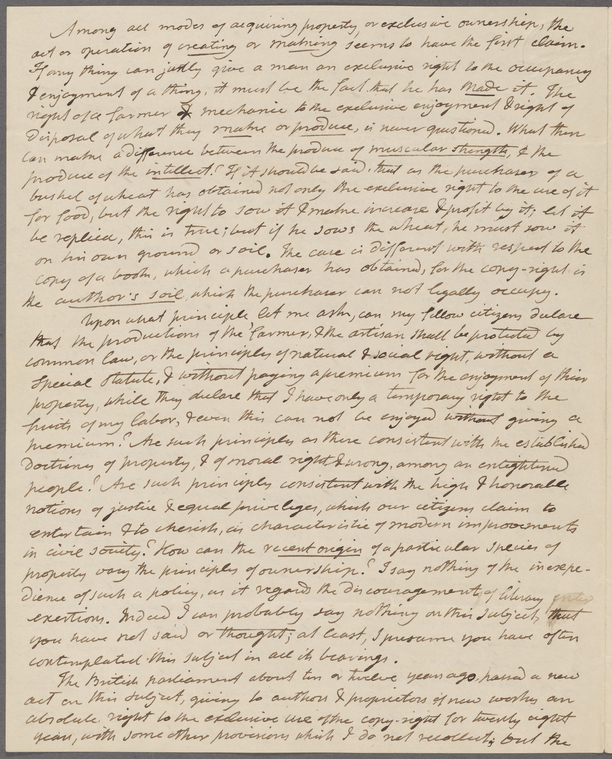 Among all modes of acquiring property, or exclusive ownership, the
act or operation of creating or making seems to have the first claim.
If any thing can justly give a man an exclusive right to the occupancy
& enjoyment of a thing, it must be the fact that he has made it. The
right of a farmer & mechanic to the exclusive enjoyment & right of
disposal of what they make or produce, is never questioned. What then
can make a difference between the produce of muscular strength, & the
produce of the intellect? If it should be said, that as the purchaser of a
bushel of wheat has obtained not only the exclusive right to the use of it
for food, but the right to sow it & make increase & profit by it; let it
be replied, this is true; but if he sows the wheat, he must sow it
on his own ground or soil. The case is different with respect to the
copy of a book, which a purchaser has obtained, for the copy-right is
the author's soil, which the purchaser can not legally occupy.
Upon what principle, let me ask, can my fellow citizens declare
that the productions of the farmer, & the artisan shall be protected by
common law, or the principles of natural & social right, without a
special statute, & without paying a premium for the enjoyment of their
property, while they declare that I have only a temporary right to the
fruits of my labor, & even this can not be enjoyed without giving a
premium? Are such principles as these consistent with the established
doctrines of property, & of moral right & wrong, among an enlightened
people? Are such principles consistent with the high & honorable
notions of justice & equal privileges, which our citizens claim to
entertain & to cherish, as characteristic of modern improvements
in civil society? How can the recent origin of a particular species of
property vary the principles of ownership? I say nothing of the inexpe-
dience of such a policy, as it regards the discouragement of literary
exertions. Indeed I can probably say nothing on this subject, that
you have not said or thought; at least, I presume you have often
contemplated this subject in all its bearings.
The British parliament about ten or twelve years ago, passed a new
act on this subject, giving to authors & proprietors of new works an
absolute right to the exclusive use of the copy-right for twenty eight
years, with some other provisions which I do not recollect; but the